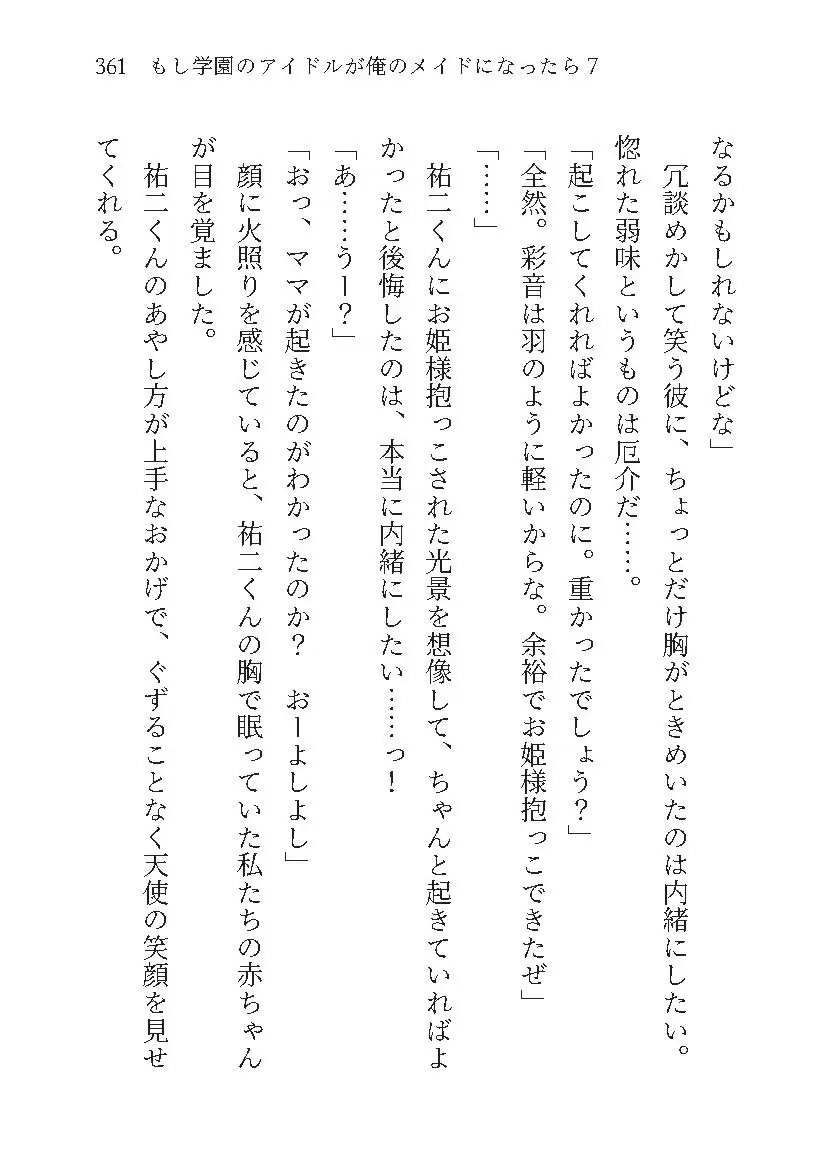 361 もし学園のアイドルが俺のメイドになったら7
なるかもしれないけどな」
　冗談めかして笑う彼に、ちょっとだけ胸がときめいたのは内緒にしたい。
惚れた弱味というものは厄介だ……。
「起こしてくれればよかったのに。重かったでしょう？」
「全然。彩音は羽のように軽いからな。余裕でお姫様抱っこできたぜ」
「……」
　祐二くんにお姫様抱っこされた光景を想像して、ちゃんと起きていればよ
かったと後悔したのは、本当に内緒にしたい……っ！
「あ……うー？」
「おっ、ママが起きたのがわかったのか？　おーよしよし」
　顔に火照りを感じていると、祐二くんの胸で眠っていた私たちの赤ちゃん
が目を覚ました。
　祐二くんのあやし方が上手なおかげで、ぐずることなく天使の笑顔を見せ
てくれる。